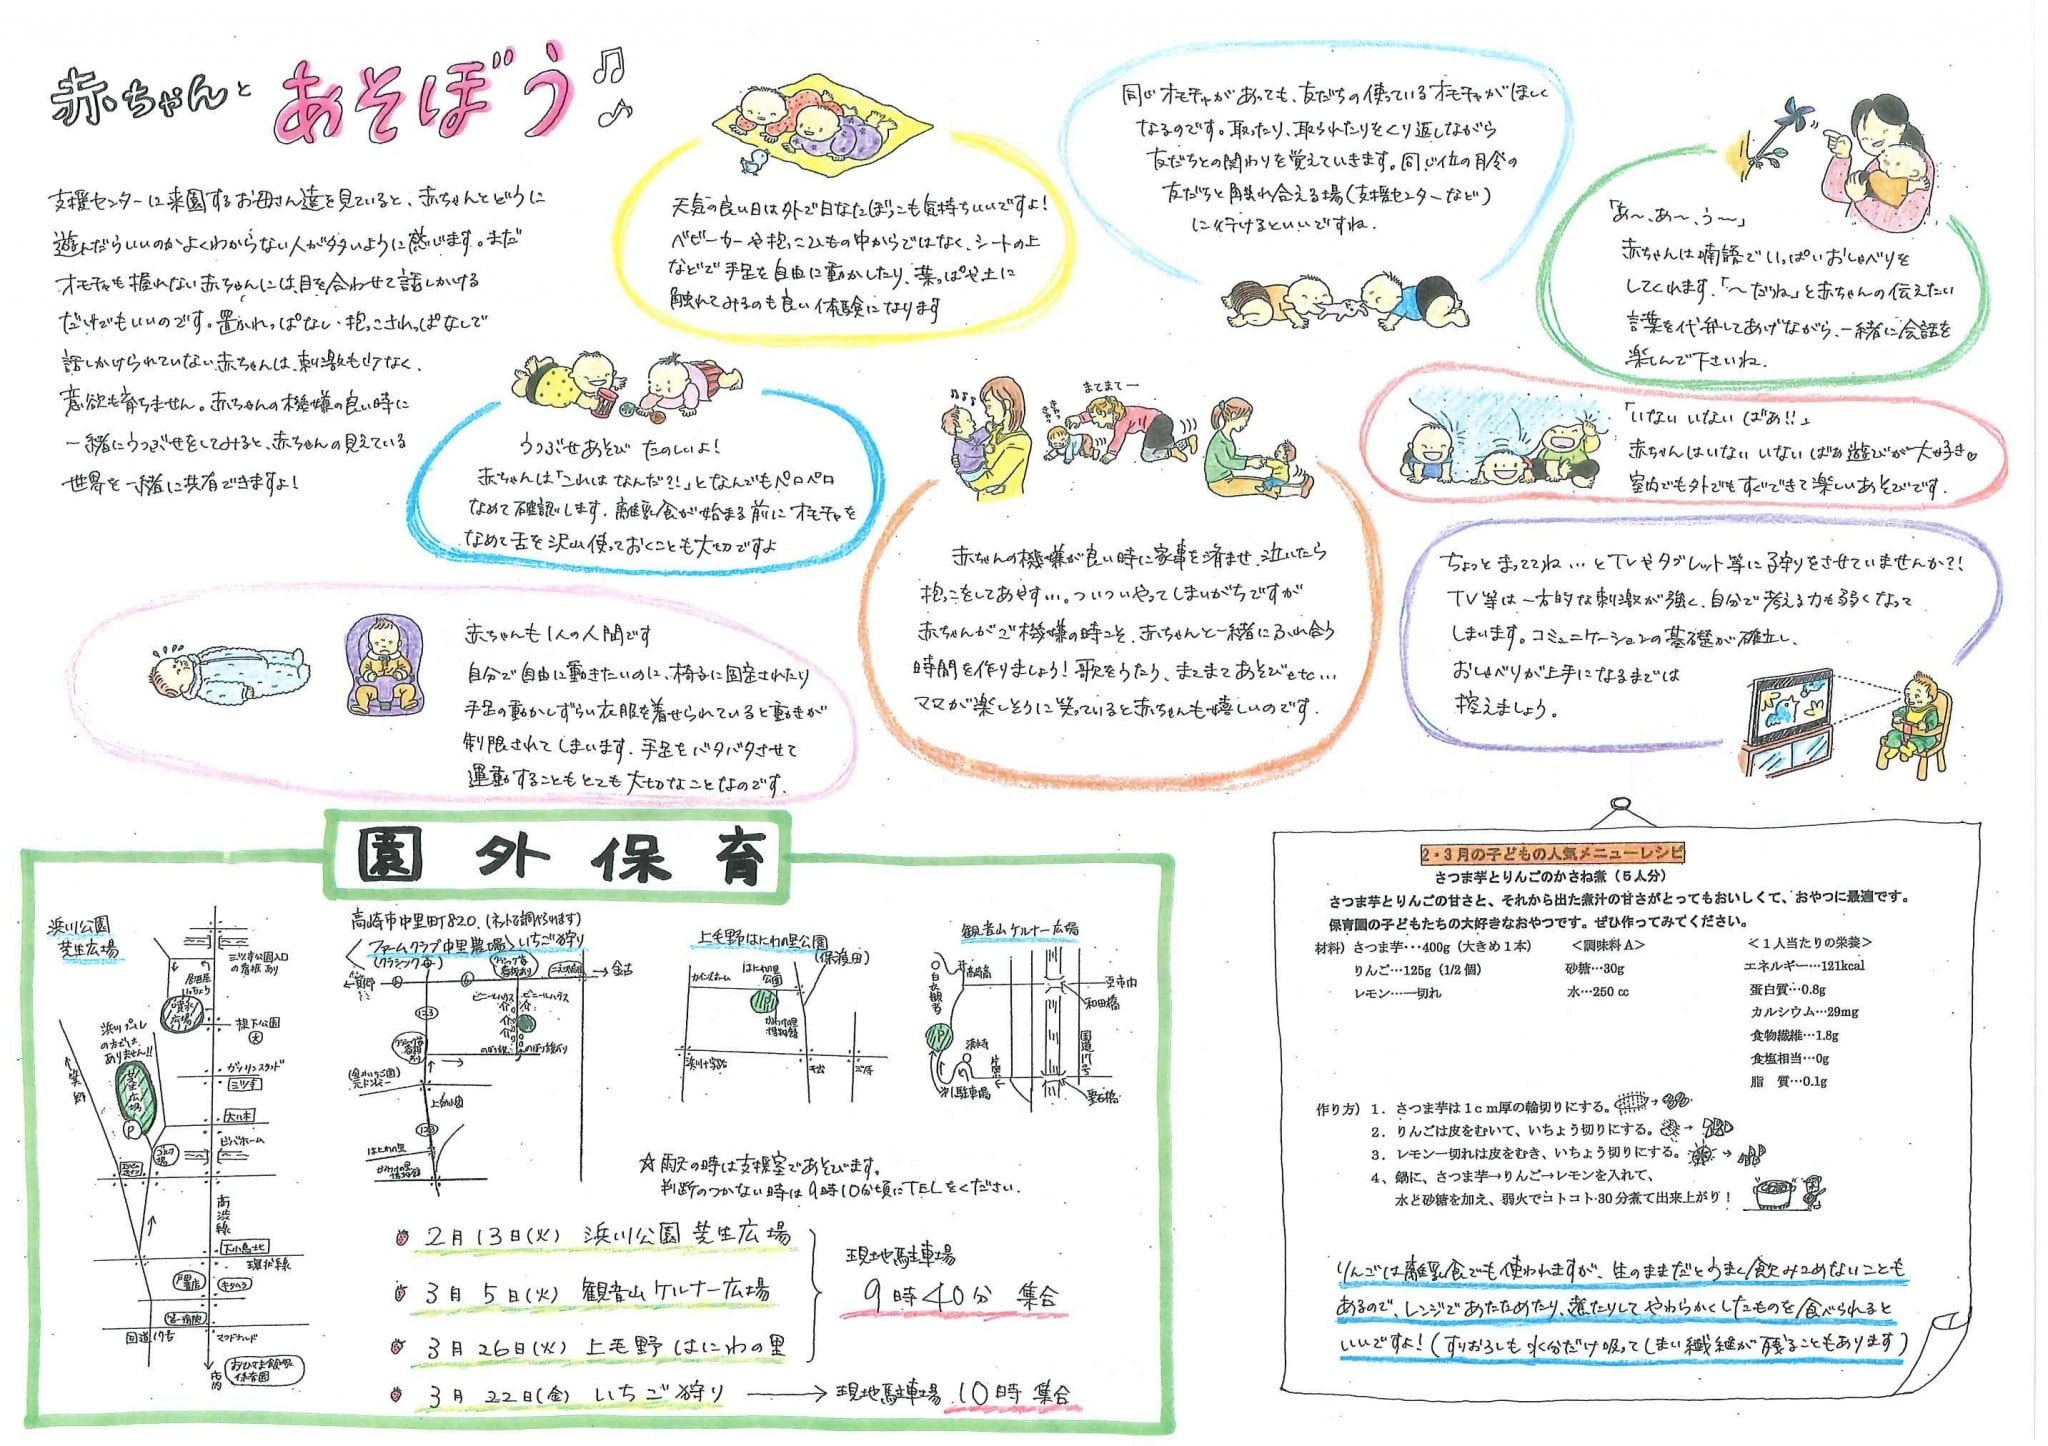 赤ちゃんと あそぼう
支援センターに来園するお母さん達を見ていると、赤ちゃんとどうに
遊んだらいいのかよくわからない人が多いように感じます。まだ
オモチャも握れない赤ちゃんには、目を合わせて話しかける
だけでもいいのです。置かれっぱなし・抱っこされっぱなしで
話しかけられていない赤ちゃんは、刺激も少なく、
意欲も育ちません。赤ちゃんの機嫌の良い時に
一緒にうつぶせをしてみると、赤ちゃんの見えている
世界を一緒に共有できますよ!
天気の良い日は外で日なたぼっこも気持ちいいですよ!
ベビーカーや抱っこひもの中からではなく、シートの上
などで手足を自由に動かしたり、葉っぱや土に
触れてみるのも良い体験になります
同じオモチャがあっても、友だちの使っているオモチャがほしく
なるのです。取ったり、取られたりをくり返しながら
友だちとの関わりを覚えていきます。同じ位の月令の
友だちと触れ合える場(支援センターなど)
に行けるといいですね。
「あ～、あ～、う～」
赤ちゃんは喃語でいっぱいおしゃべりを
してくれます。「～だね」と赤ちゃんの伝えたい
言葉を代弁してあげながら、一緒に会話を
楽しんで下さいね。
うつぶせあそび たのしいよ!
赤ちゃんは「これは なんだ?!」となんでもペロペロ
なめて確認します。離乳食が始まる前にオモチャを
なめて舌を沢山使っておくことも大切ですよ
まてまてー
赤ちゃんの機嫌が良い時に家事を済ませ、泣いたら
抱っこをしてあやす…。ついついやってしまいがちですが
赤ちゃんがご機嫌の時こそ、赤ちゃんと一緒にふれ合う
時間を作りましょう!歌をうたう、まてまてあそびetc…
ママが楽しそうに笑っていると赤ちゃんも嬉しいのです。
「いない いない ばあ!!」
赤ちゃんはいない いない ばあ遊びが大好き♡
室内でも外でもすぐできて楽しいあそびです。
ちょっとまっててね…とTVやタブレット等に子守りをさせていませんか?!
TV等は一方的な刺激が強く、自分で考える力も弱くなって
しまいます。コミュニケーションの基礎が確立し、
おしゃべりが上手になるまでは
控えましょう。
赤ちゃんも1人の人間です
自分で自由に動きたいのに、椅子に固定されたり
手足の動かしずらい衣服を着せられていると動きが
制限されてしまいます。手足をバタバタさせて
運動することもとても大切なことなのです。
園外保育
浜川公園
芝生広場
三ツ寺公園入口
の看板あり
噴水広場
浜川プール
の方では
ありません!!
芝生広場
P
堤下公園
ガソリンスタンド
三ツ寺
大八木
ビバホーム
高渋線
大小鳥北
環状線
キタムラ
国道17号
マクドナルド
高崎市中里町820 (ネットで調べられます)
ファームクラブ中里農場 いちご狩り
金古
ビニールハウス
ビニールハウス
はにわの里
上毛野はにわの里公園
(保渡田)
カインズホーム
はにわの里
公園
P
かみつけの里
博物館
観音山ケルナー広場
白衣観音
P
第1駐車場
至市内
和田橋
国道17号
聖石橋
☆雨天の時は支援室であそびます。
判断のつかない時は9時10分頃にTELをください。
2月13日(火) 浜川公園 芝生広場
3月 5日(火) 観音山ケルナー広場
3月26日(火) 上毛野 はにわの里
現地駐車場
9時40分 集合
3月22日(金) いちご狩り → 現地駐車場 10時 集合
2・3月の子どもの人気メニューレシピ
さつま芋とりんごのかさね煮(5人分)
さつま芋とりんごの甘さと、それから出た煮汁の甘さがとってもおいしくて、おやつに最適です。
保育園の子どもたちの大好きなおやつです。ぜひ作ってみてください。
材料) さつま芋…400g(大きめ1本)
りんご…125g(1/2個)
レモン…一切れ
<調味料A>
砂糖…30g
水…250㏄
<1人当たりの栄養>
エネルギー…121kcal
蛋白質…0.8g
カルシウム…29mg
食物繊維…1.8g
食塩相当…0g
脂 質…0.1g
作り方) 1. さつま芋は1cm厚の輪切りにする。
2. りんごは皮をむいて、いちょう切りにする。
3. レモン一切れは皮をむき、いちょう切りにする。
4、鍋に、さつま芋→りんご→レモンを入れて、
水と砂糖を加え、弱火でコトコト30分煮て出来上がり!
りんごは離乳食でも使われますが、生のままだとうまく飲みこめないことも
あるので、レンジであたためたり、煮たりしてやわらかくしたものを食べられると
いいですよ!(すりおろしも水分だけ吸ってしまい繊維が残ることもあります)